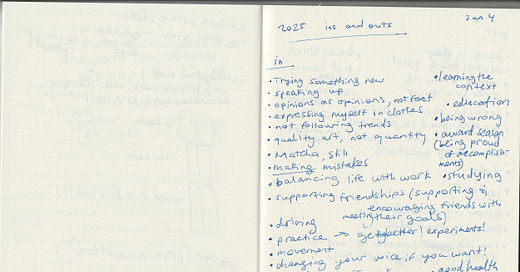 Jan 4
2025 ins and outs
in
• Trying something new
• speaking up
• opinions as opinions, not fact
• expressing myself in clothes
• not following trends
• quality art, not quantity
• Matcha, still
• making mistakes
• balancing life with work
• supporting friendships (supporting &
encouraging friends with
meeting their goals)
• driving
• practice → get better! experiments!
• movement
• changing your voice if you want!
• learning the
context
• education
• being wrong
• award season
(being proud
of accomplish-
ments)
• studying
• good health